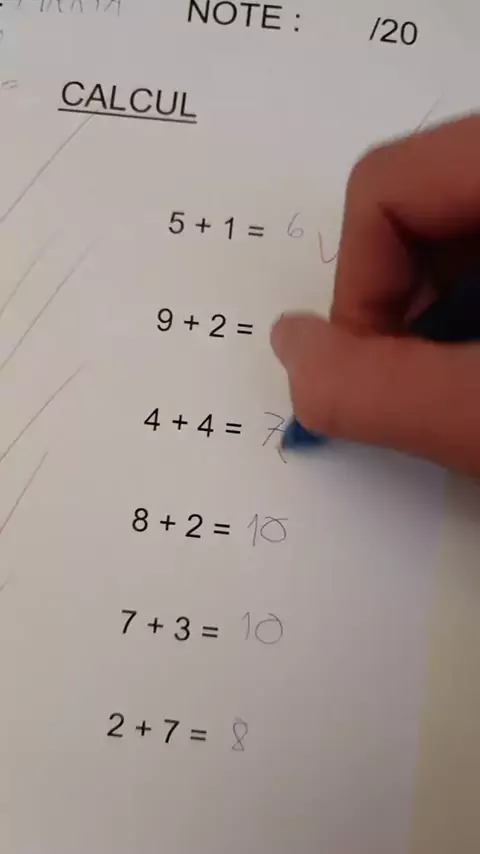 NOTE : /20
CALCUL
5 + 1 = 6
9 + 2 =
4 + 4 = 7
8 + 2 = 10
7 + 3 = 10
2 + 7 = 8